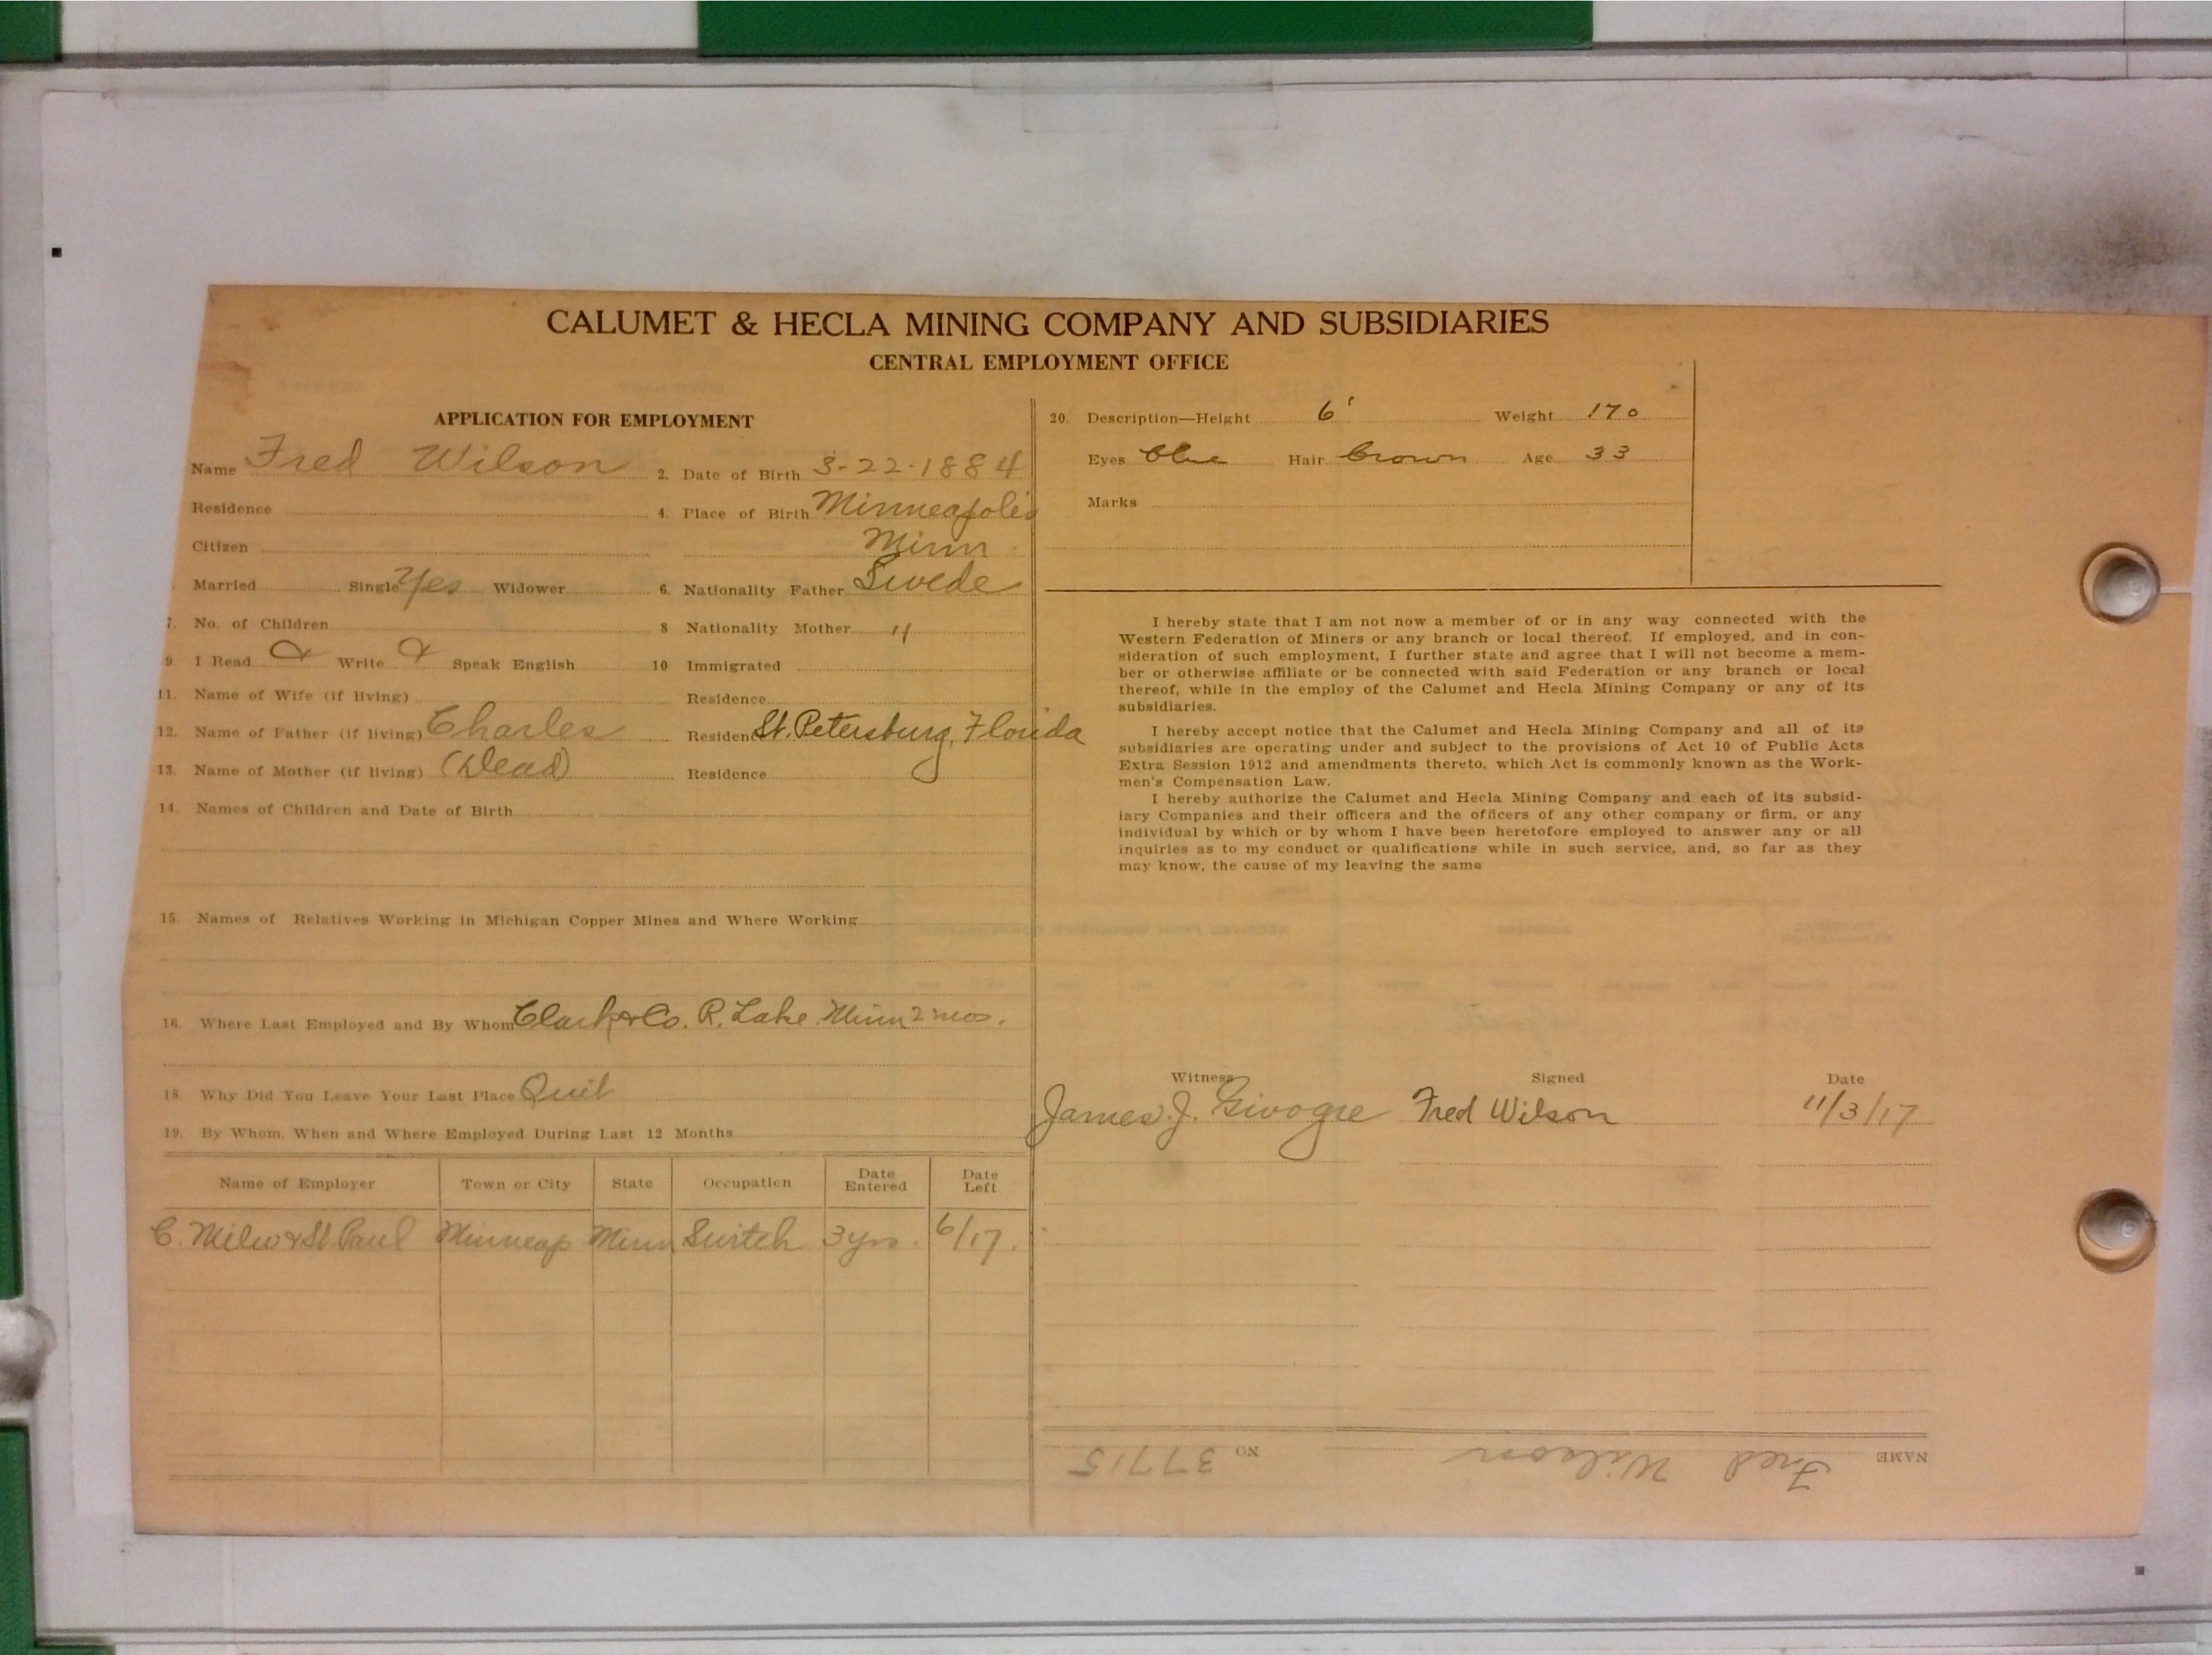 CALUMET & HECLA MINING COMPANY AND SUBSIDIARIES
CENTRAL EMPLOYMENT OFFICE
APPLICATION FOR EMPLOYMENT
Name Fred Wilson 2. Date of Birth 3-22-1884
Residence 4. Place of Birth Minneapolis
Citizen Minn
Married Single Yes Widower 6. Nationality Father Swede
7. No. of Children 8 Nationality Mother "
9. I Read & Write & Speak English 10 Immigrated
11. Name of Wife (if living) Residence
12. Name of Father (if living) Charles Residence St. Petersburg, Florida
13. Name of Mother (if living) (Dead) Residence
14. Names of Children and Date of Birth
15. Names of Relatives Working in Michigan Copper Mines and Where Working
16. Where Last Employed and By Whom Clark & Co. R. Lake Minn 2 mos.
18. Why Did You Leave Your Last Place Quit
19. By Whom, When and Where Employed During Last 12 Months
Name of Employer Town or City State Occupation Date Entered Date Left
C. Milw & St Paul Minneap Minn Switch 3 yrs. 6/17.
20. Description—Height 6' Weight 170
Eyes blue Hair brown Age 33
Marks
I hereby state that I am not now a member of or in any way connected with the
Western Federation of Miners or any branch or local thereof. If employed, and in con-
sideration of such employment, I further state and agree that I will not become a mem-
ber or otherwise affiliate or be connected with said Federation or any branch or local
thereof, while in the employ of the Calumet and Hecla Mining Company or any of its
subsidiaries.
I hereby accept notice that the Calumet and Hecla Mining Company and all of its
subsidiaries are operating under and subject to the provisions of Act 10 of Public Acts
Extra Session 1912 and amendments thereto, which Act is commonly known as the Work-
men's Compensation Law.
I hereby authorize the Calumet and Hecla Mining Company and each of its subsid-
iary Companies and their officers and the officers of any other company or firm, or any
individual by which or by whom I have been heretofore employed to answer any or all
inquiries as to my conduct or qualifications while in such service, and, so far as they
may know, the cause of my leaving the same
Witness Signed Date
James J. Fred Wilson 11/3/17
NAME Fred Wilson NO 37715